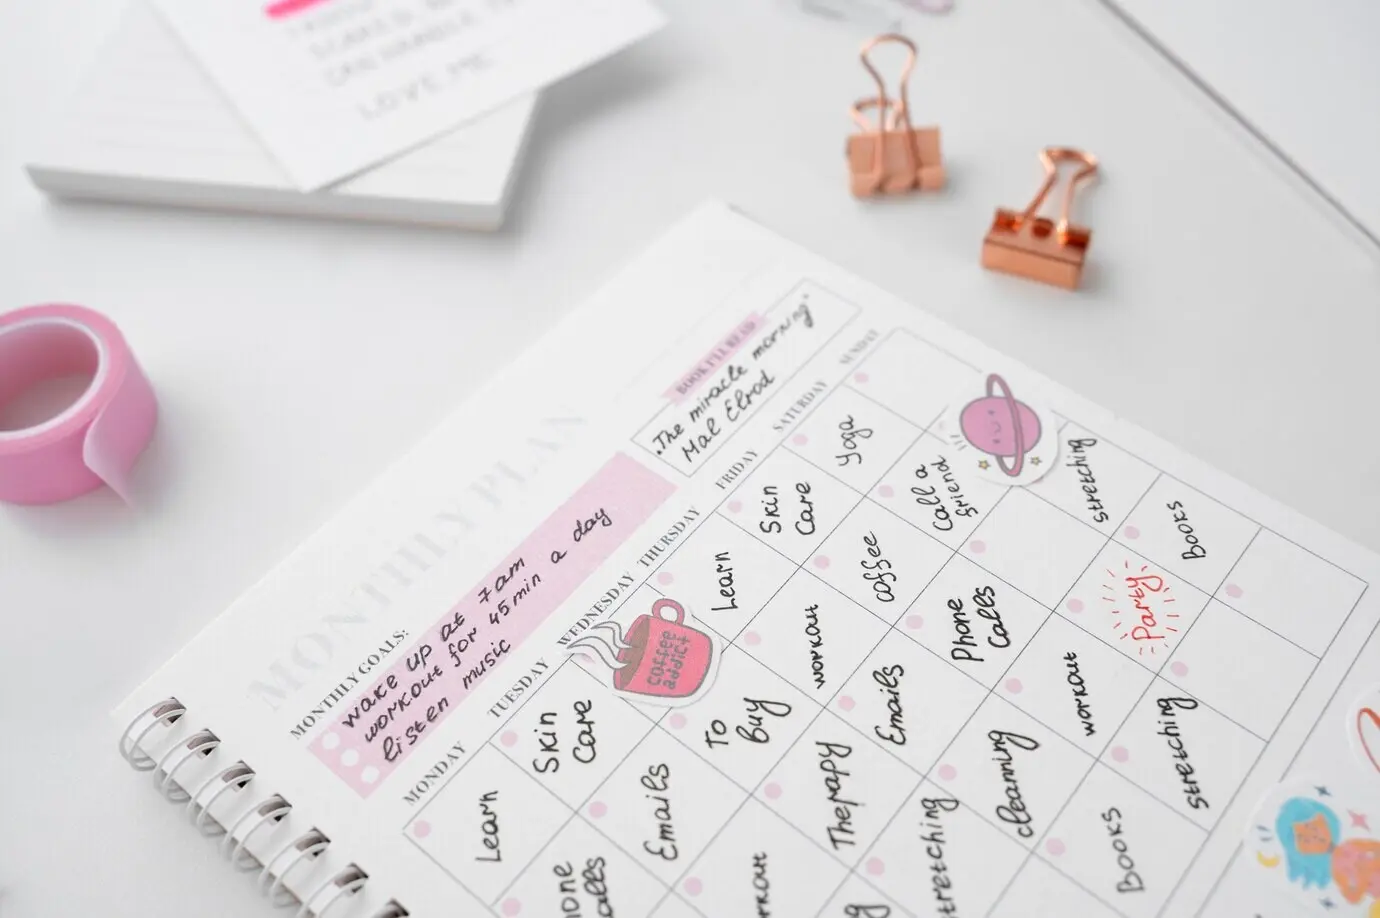 LOVE ME
MONTHLY PLAN
BOOK I'LL READ
.The miracle morning"
Mal Elrod
MONTHLY GOALS:
wake up at 7am
workout for 45min a day
listen music
MONDAY
TUESDAY
WEDNESDAY
THURSDAY
FRIDAY
SATURDAY
SUNDAY
Learn
Skin
Care
coffee
addict
Learn
Skin
Care
Yoga
Emails
To
Buy
workout
coffee
Call a
friend
Therapy
Emails
Phone
Calls
stretching
stretching
cleaning
workout
Party
Books
Books
stretching